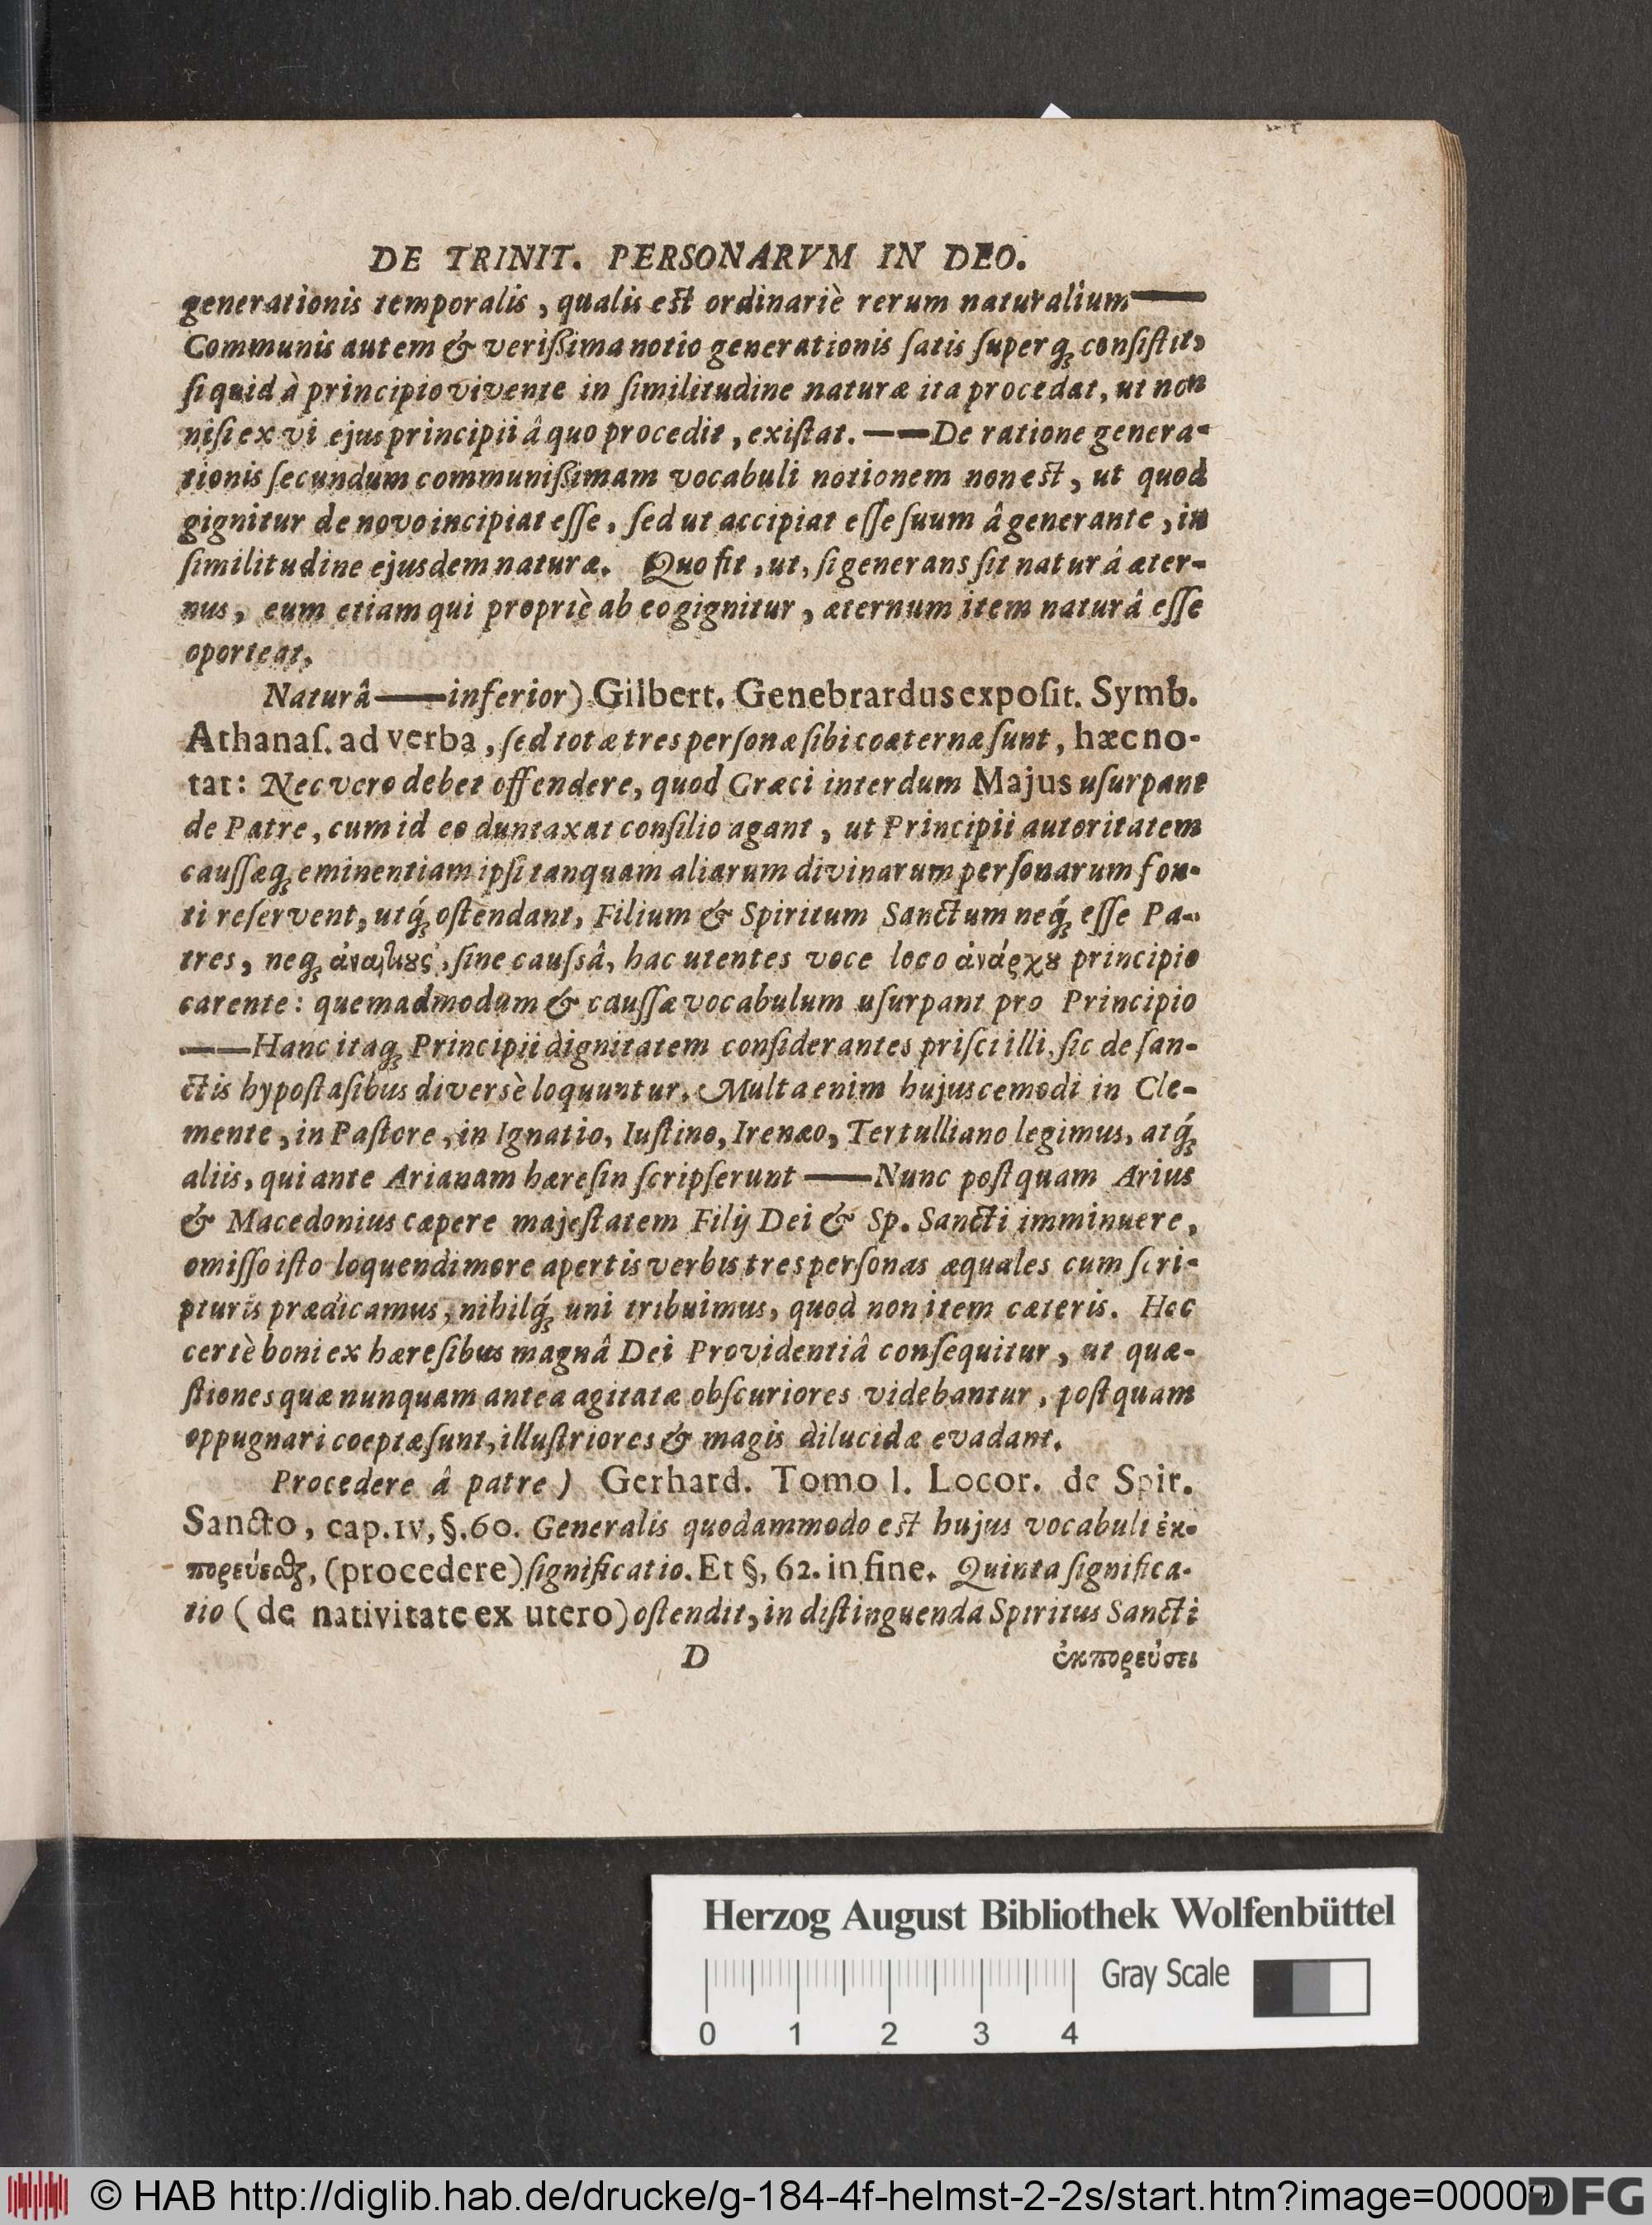 DE TRINIT. PERSONARVM IN DEO.
generationis temporalis, qualis est ordinariè rerum naturalium——
Communis autem & verißima notio generationis ſatis ſuperq́; conſiſtit,
ſi quid à principio vivente in ſimilitudine naturæ ita procedat, ut non
niſi ex vi ejus principii â quo procedit, exiſtat. —— De ratione genera-
tionis ſecundum communißimam vocabuli notionem non est, ut quod
gignitur de novo incipiat eſſe, ſed ut accipiat eſſe ſuum â generante, in
ſimilitudine ejusdem naturæ. Quo fit, ut, ſi generans ſit naturâ æter-
nus, eum etiam qui propriè ab eo gignitur, æternum item naturâ eſſe
oporteat.
Naturâ——inferior) Gilbert. Genebrardus expoſit. Symb.
Athanaſ. ad verba, ſed totæ tres perſonæ ſibi coæternæ ſunt, hæc no-
tat: Nec vero debet offendere, quod Græci interdum Majus uſurpant
de Patre, cum id eo duntaxat conſilio agant, ut Principii autoritatem
cauſſæq; eminentiam ipſi tanquam aliarum divinarum perſonarum fon-
ti reſervent, utq́; oſtendant, Filium & Spiritum Sanctum neq́; eſſe Pa-
tres, neq; ἀναιτίȣς, ſine cauſsâ, hac utentes voce loco ἀνάρχȣ principio
carente: quemadmodum & cauſſæ vocabulum uſurpant pro Principio
——Hanc itaq; Principii dignitatem conſiderantes priſci illi, ſic de ſan-
ctis hypoſtaſibus diversè loquuntur. Multa enim hujuscemodi in Cle-
mente, in Paſtore, in Ignatio, Iuſtino, Irenæo, Tertulliano legimus, atq́;
aliis, qui ante Arianam hæreſin ſcripſerunt —— Nunc poſtquam Arius
& Macedonius cæpere majeſtatem Filij Dei & Sp. Sancti imminuere,
omiſſo iſto loquendi more apertis verbis tres perſonas æquales cum ſcri-
pturis prædicamus, nihilq́; uni tribuimus, quod non item cæteris. Hoc
certè boni ex hæreſibus magnâ Dei Providentiâ conſequitur, ut quæ-
ſtiones quæ nunquam antea agitatæ obſcuriores videbantur, poſtquam
oppugnari coeptæ ſunt, illuſtriores & magis dilucidæ evadant.
Procedere â patre) Gerhard. Tomo I. Locor. de Spir.
Sancto, cap. IV, §. 60. Generalis quodammodo est hujus vocabuli ἐκ-
πορεύεσθαι, (procedere) ſignificatio. Et §, 62. in fine. Quinta ſignifica-
tio (de nativitate ex utero) oſtendit, in diſtinguenda Spiritus Sancti
D ἐκπορεύσει
Herzog August Bibliothek Wolfenbüttel
Gray Scale
0 1 2 3 4
© HAB http://diglib.hab.de/drucke/g-184-4f-helmst-2-2s/start.htm?image=00009
DFG